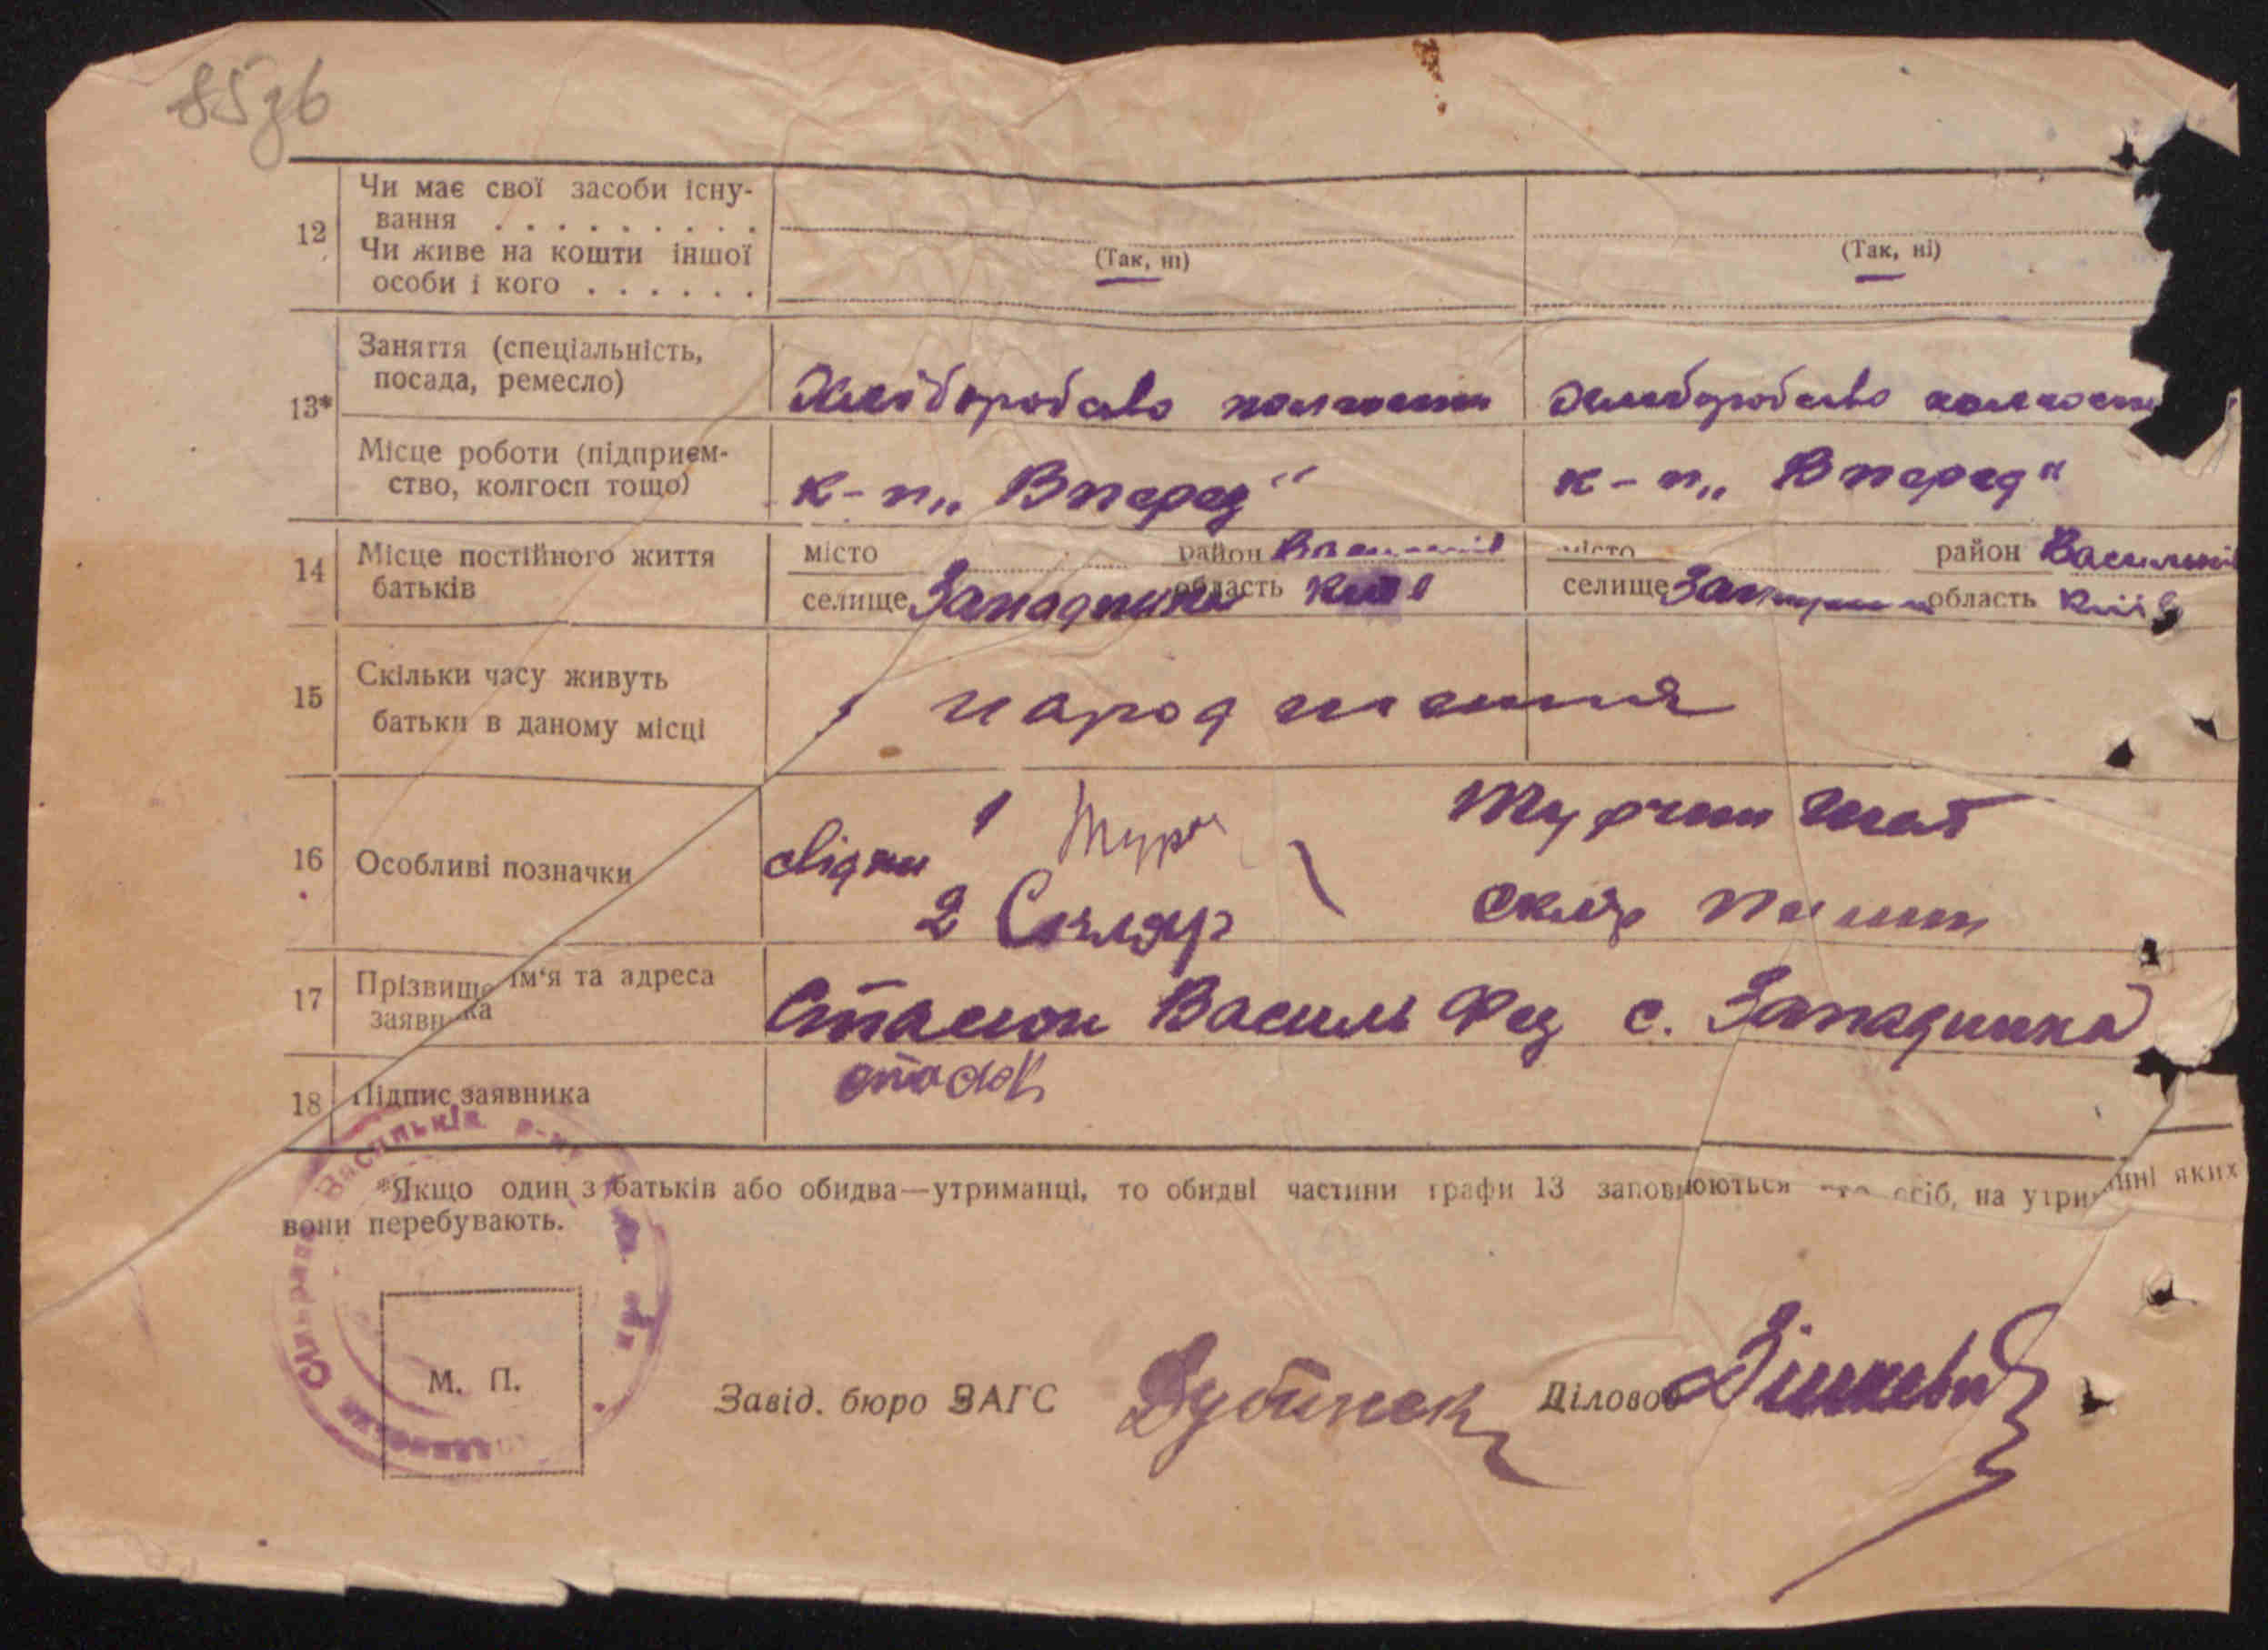 85зв
12 Чи має свої засоби існу-
вання . . . . . . . . . .
Чи живе на кошти іншої
особи і кого . . . . . .
(Так, ні) (Так, ні)
13* Заняття (спеціальність,
посада, ремесло)
Хліборобство Хліборобство
Місце роботи (підприєм-
ство, колгосп тощо)
к-п „Вперед" к-п „Вперед"
14 Місце постійного життя
батьків
місто район місто район Васильків
селище Западинка область Київ селище область Київ
15 Скільки часу живуть
батьки в даному місці
народження
16 Особливі позначки
свідки 1 Турч
2 Скляр Скляр
17 Прізвище ім'я та адреса
заявника
Стасюк Василь Фед с. Западинка
18 Підпис заявника
Стасюк
*Якщо один з батьків або обидва—утриманці, то обидві частини графи 13 заповнюються про осіб, на утриманні яких
вони перебувають.
Васильків р-ну Сільрада
М. П.
Завід. бюро ЗАГС Діловод